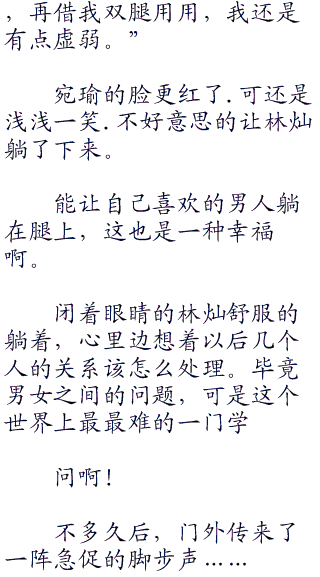 ，再借我双腿用用，我还是
有点虚弱。”
宛瑜的脸更红了.可还是
浅浅一笑.不好意思的让林灿
躺了下来。
能让自己喜欢的男人躺
在腿上，这也是一种幸福
啊。
闭着眼睛的林灿舒服的
躺着，心里边想着以后几个
人的关系该怎么处理。毕竟
男女之间的问题，可是这个
世界上最最难的一门学
问啊！
不多久后，门外传来了
一阵急促的脚步声……